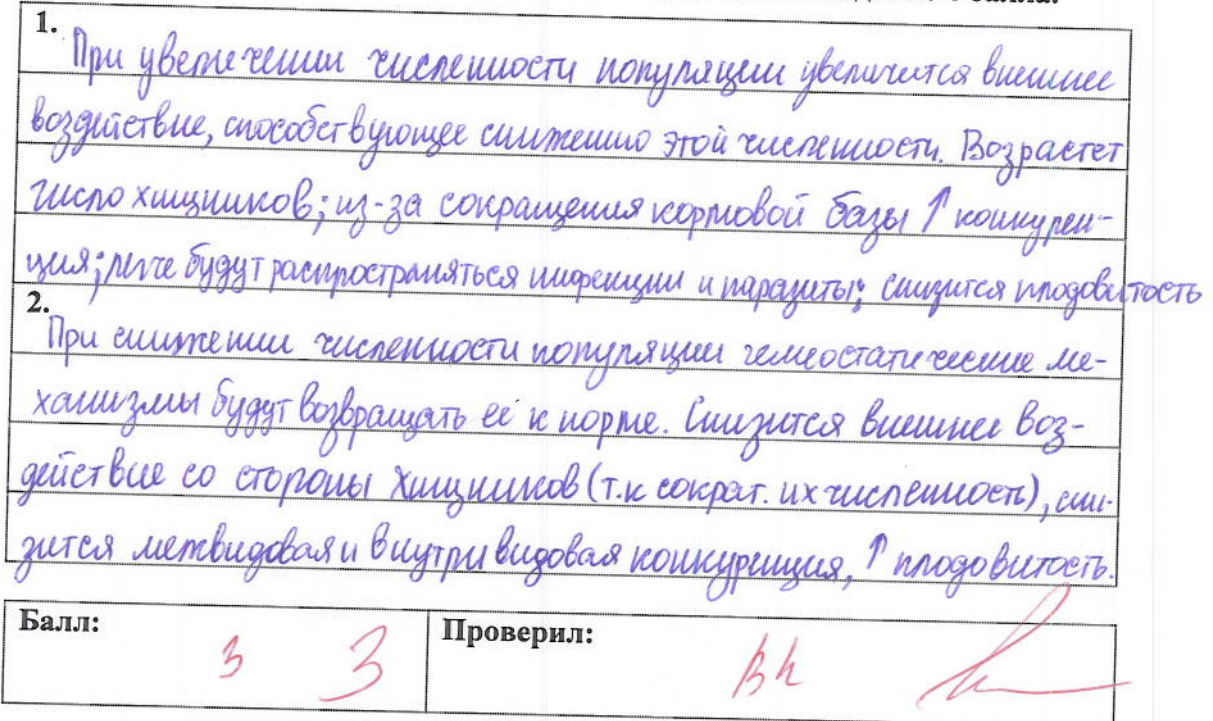 1.
При увеличении численности популяции увеличится внешнее
воздействие, способствующее снижению этой численности. Возрастет
число хищников; из-за сокращения кормовой базы ↑ конкурен-
ция; легче будут распространяться инфекции и паразиты; снизится плодовитость
2.
При снижении численности популяции гемеостатические ме-
ханизмы будут возвращать её к норме. Снизится внешнее воз-
действие со стороны хищников (т.к сократ. их численность), сни-
зится межвидовая и внутривидовая конкуренция, ↑ плодовитость.
Балл: 3 3 Проверил: Вк